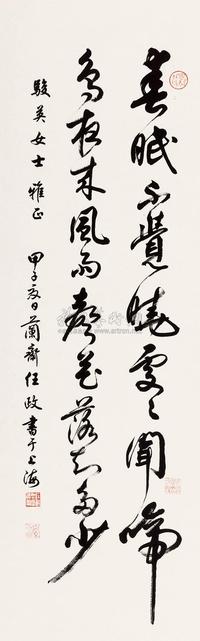 春眠不覺曉處々聞啼
鳥夜来風雨聲花落知多少
駿英女士 雅正 甲子夏日蘭齋任政書于上海